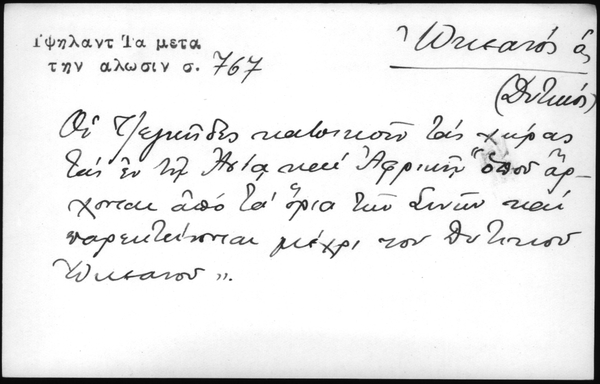 Ὑψηλαντ Τα μετα
την αλωσιν σ. 767
Ὠκεανός ὁ
(Δυτικός)
Οἱ Τζεγκῆδες κατοικοῦν τάς χώρας
τάς ἐν τῇ Ἀσίᾳ καί Ἀφρικῇ "ὅπου ἄρ-
χονται ἀπό τά ὅρια τῶν Σινῶν καί
παρεκτείνονται μέχρι τοῦ Δυτικοῦ
Ὠκεανοῦ".